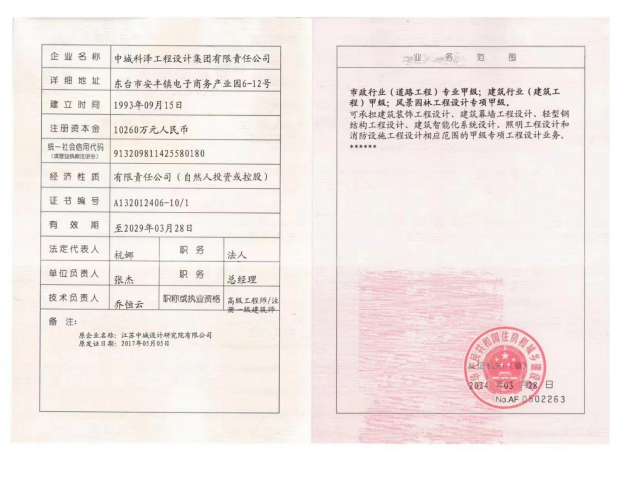 企业名称 中城科泽工程设计集团有限责任公司
详细地址 东台市安丰镇电子商务产业园6-12号
建立时间 1993年09月15日
注册资本金 10260万元人民币
统一社会信用代码 913209811425580180
(或营业执照注册号)
经济性质 有限责任公司（自然人投资或控股）
证书编号 A132012406-10/1
有效期 至2029年03月28日
法定代表人 杭娜 职务 法人
单位负责人 张杰 职务 总经理
技术负责人 乔恒云 职称或执业资格 高级工程师/注
册一级建筑师
备注:
原企业名称: 江苏中城设计研究院有限公司
原发证日期: 2017年05月05日
业务范围
市政行业（道路工程）专业甲级；建筑行业（建筑工
程）甲级；风景园林工程设计专项甲级。
可承担建筑装饰工程设计、建筑幕墙工程设计、轻型钢
结构工程设计、建筑智能化系统设计、照明工程设计和
消防设施工程设计相应范围的甲级专项工程设计业务。
******
2024 年 03 月 28 日
No.AF 0502263